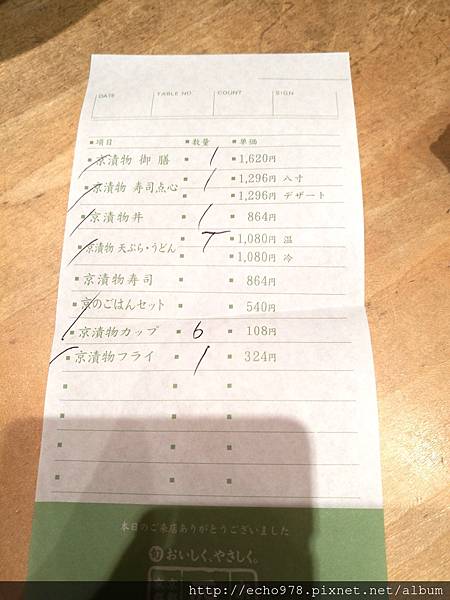 DATE TABLE NO. COUNT SIGN
項目 数量 単価
京漬物 御膳 1 1,620円
京漬物 寿司点心 1 1,296円 八寸
1,296円 デザート
京漬物丼 1 864円
京漬物 天ぷら・うどん T 1,080円 温
1,080円 冷
京漬物寿司 864円
京のごはんセット 540円
京漬物カップ 6 108円
京漬物フライ 1 324円
本日のご来店ありがとうございました
おいしく、やさしく。
http://echo978.pixnet.net/album